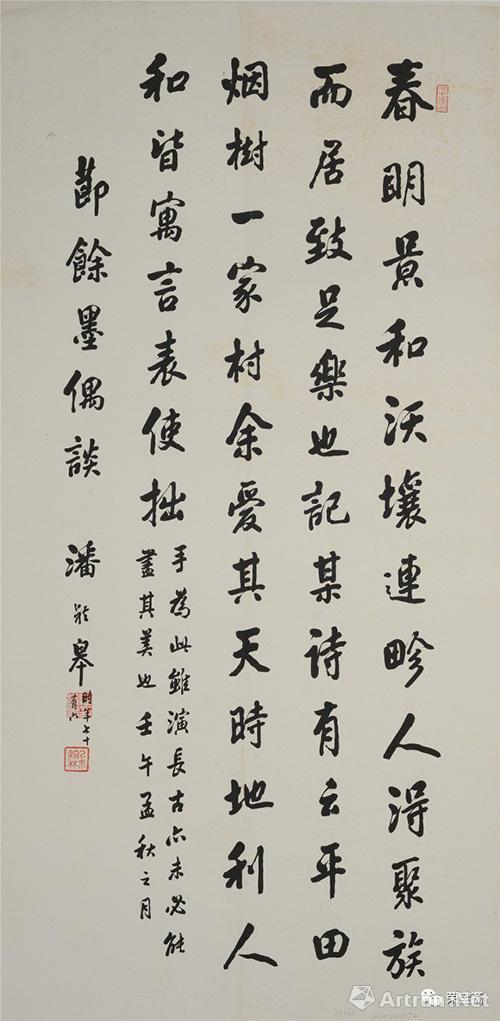 春明景和沃壤連畛人得聚族
而居致足樂也記某詩有云平田
烟樹一家村余愛其天時地利人
和皆寓言表使拙
手為此雖演長古亦未必能
盡其美也壬午孟秋之月
節餘墨偶談 潘齡皋
時年七十有六
荣宝斋
Artron.net